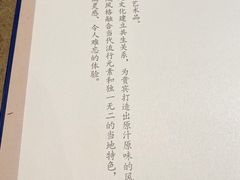 艺术品。
文化建立共生关系，为贵宾打造出原汁原味的风
风格融合当代流行元素和独一无二的当地特色，
灵感、令人难忘的体验。